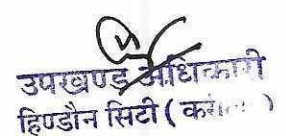 उपखण्ड अधिकारी
हिण्डौन सिटी (